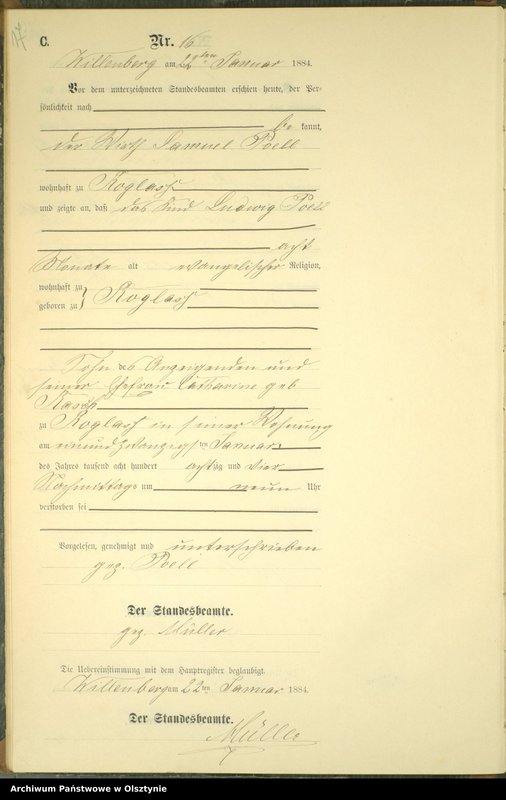 17
C. Nr. 16
Willenberg am 22ten Januar 1884.
Vor dem unterzeichneten Standesbeamten erschien heute, der Per-
sönlichkeit nach
be kannt,
der Wirth Samuel Poell
wohnhaft zu Roglass
und zeigte an, daß das Kind Ludwig Poell
acht
Monate alt evangelischer Religion,
wohnhaft zu
geboren zu } Roglass
Sohn des Anzeigenden und
seiner Ehefrau Catharine geb
zu Roglass in seiner Wohnung
am einundzwanzigsten Januar
des Jahres tausend acht hundert achtzig und vier
Nachmittags um neun Uhr
verstorben sei
Vorgelesen, genehmigt und unterschrieben
gez. Poell
Der Standesbeamte.
gez. Müller
Die Uebereinstimmung mit dem Hauptregister beglaubigt.
Willenberg am 22ten Januar 1884.
Der Standesbeamte.
Müller
Archiwum Państwowe w Olsztynie